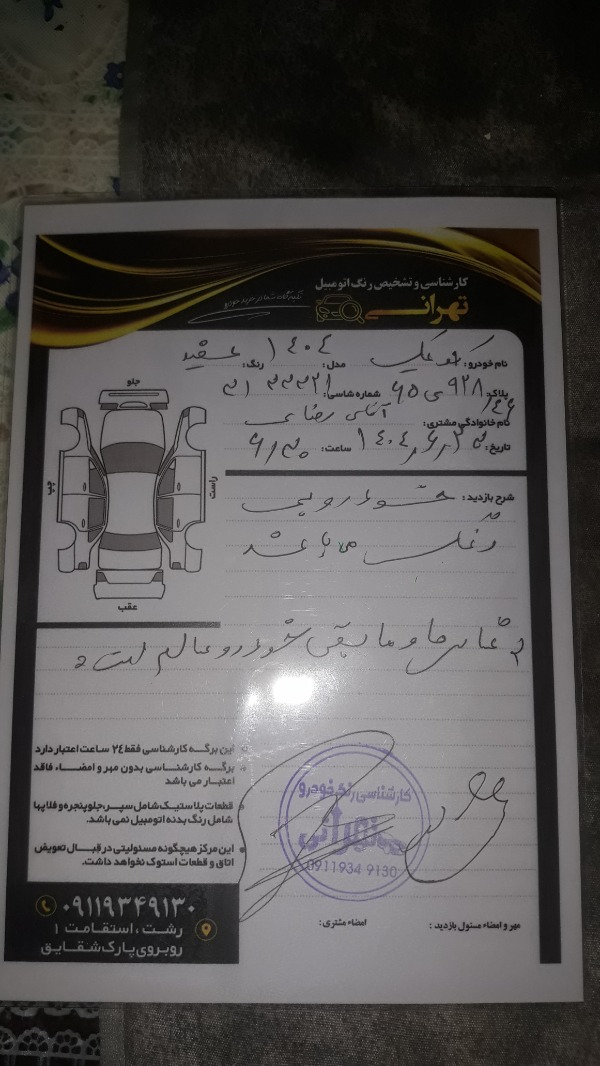 کارشناسی و تشخیص رنگ اتومبیل
تهرانی
نام خودرو: کوییک مدل: ۱۴۰۴ رنگ: سفید
پلاک: ۹۲۸ ی ۶۵ / ۴۶ شماره شاسی:
نام خانوادگی مشتری: آقای رضایی
تاریخ: ساعت:
جلو
چپ
راست
عقب
شرح بازدید: خودرو بی
رنگ می باشد
شاسی ها و مابقی خودرو سالم است
این برگه کارشناسی فقط ۲۴ ساعت اعتبار دارد
برگه کارشناسی بدون مهر و امضاء فاقد
اعتبار می باشد
قطعات پلاستیک شامل سپر، جلوپنجره و فلاپها
شامل رنگ بدنه اتومبیل نمی باشد.
این مرکز هیچگونه مسئولیتی در قبال تعویض
اتاق و قطعات استوک نخواهد داشت.
کارشناسی رنگ خودرو
تهرانی
0911934 9130
۰۹۱۱۹۳۴۹۱۳۰
رشت، استقامت ۱
روبروی پارک شقایق
مهر و امضاء مسئول بازدید:
امضاء مشتری: